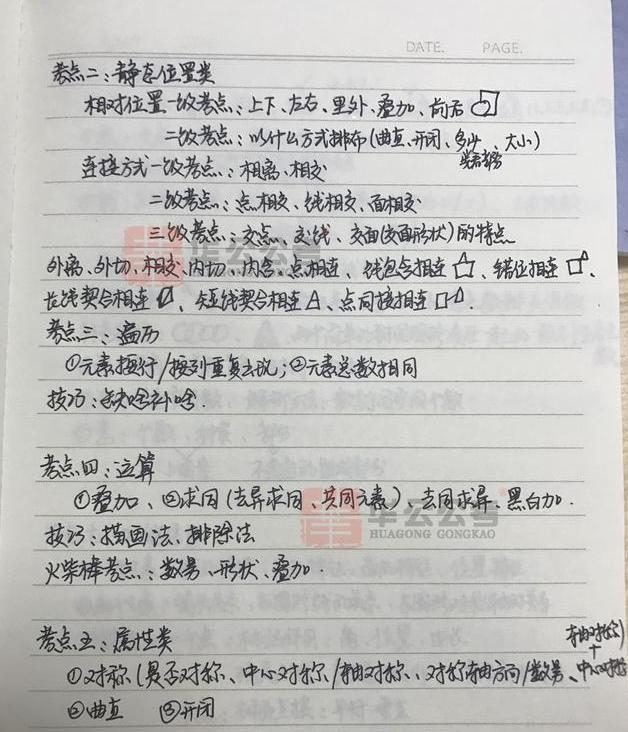 DATE. PAGE.
考点二：静态位置类
相对位置一级考点：上下、左右、里外、叠加、前后
二级考点：以什么方式排布(曲直、开闭、多少、大小)
连接方式一级考点：相离、相交
二级考点：点相交、线相交、面相交
三级考点：交点、交线、交面(交面形状)的特点
外离、外切、相交、内切、内含、点相连、线包含相连、错位相连、
长线契合相连、短线契合相连、点间接相连.
考点三：遍历
①元素按行/按列重复出现；②元素总数相同
技巧：缺啥补啥.
考点四：运算
①叠加、②求同(去异求同、共同元素)、去同求异、黑白加.
技巧：描画法、排除法
火柴棒考点：数量、形状、叠加.
考点五：属性类
轴对称)
+
①对称(是否对称、中心对称/轴对称、对称轴方向/数量、中心对称
②曲直 ③开闭
华云公考
华云公考
HUAGONG GONGKAO